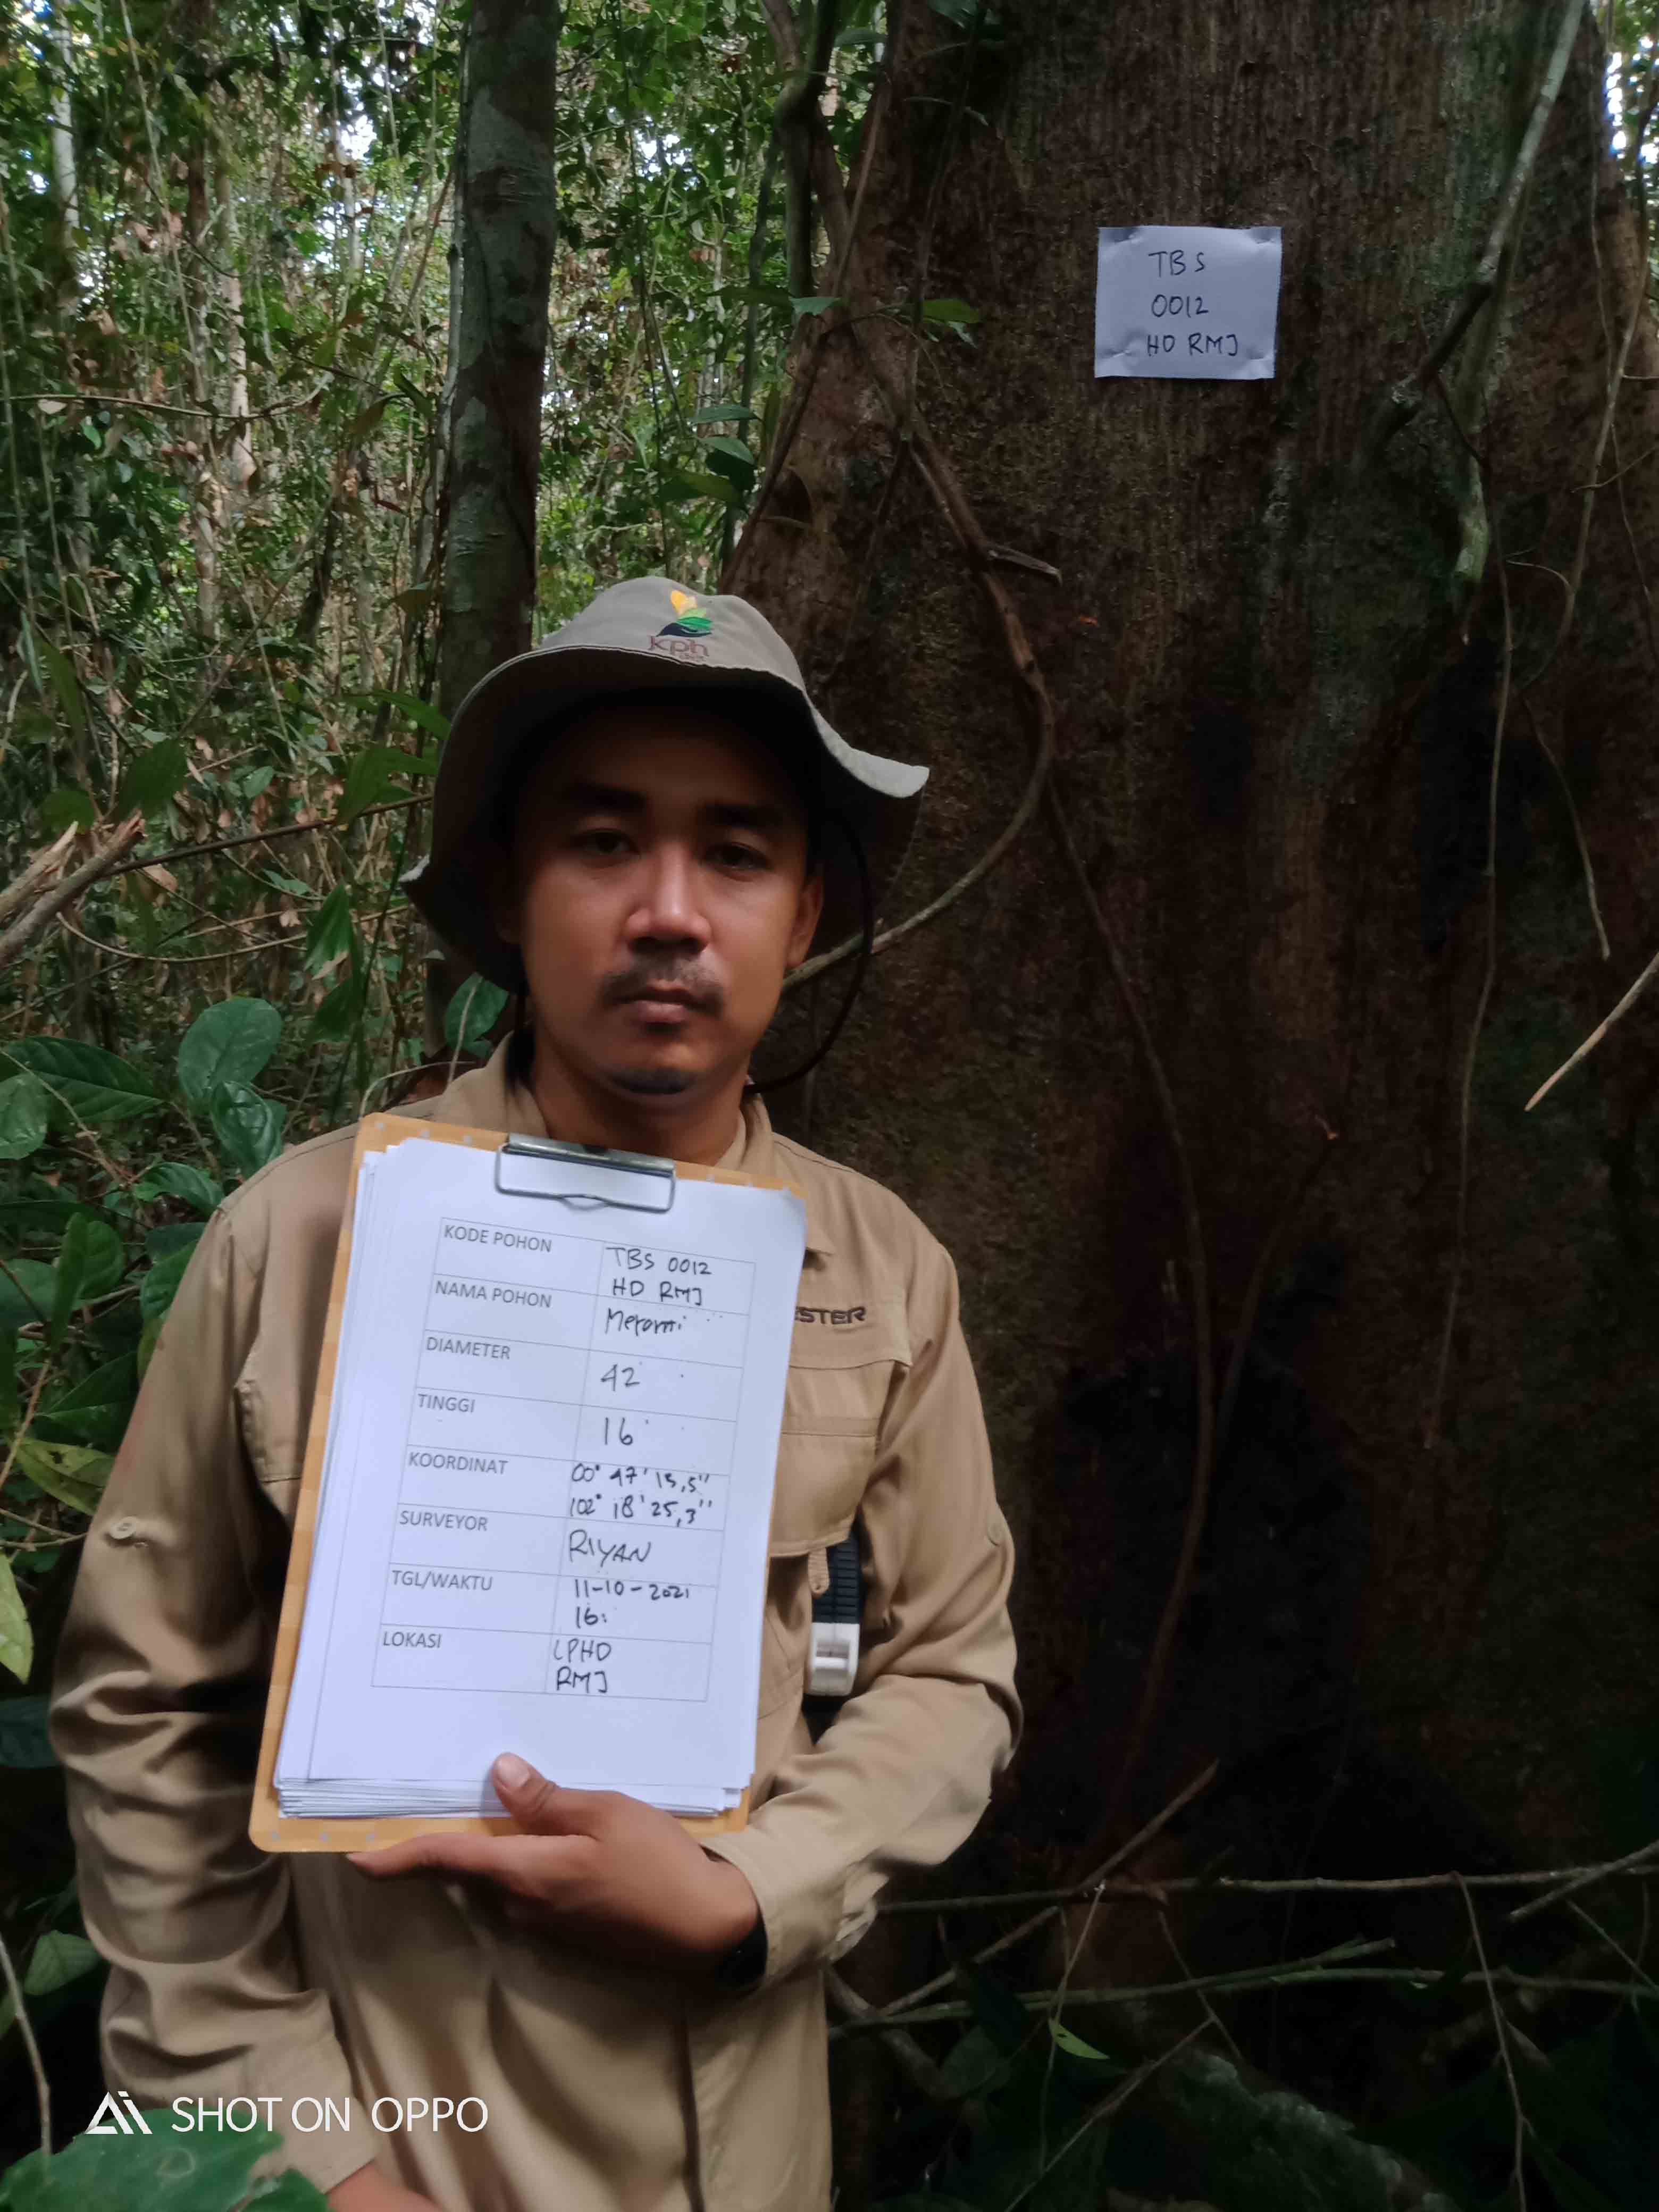 TBS
0012
HD RMJ
kph
STER
KODE POHON
TBS 0012
HD RMJ
NAMA POHON
DIAMETER
42
TINGGI
16
KOORDINAT
00° 47' 15,5"
102° 18' 25,3"
SURVEYOR
RIYAN
TGL/WAKTU
11-10-2021
16:
LOKASI
LPHD
RMJ
SHOT ON OPPO